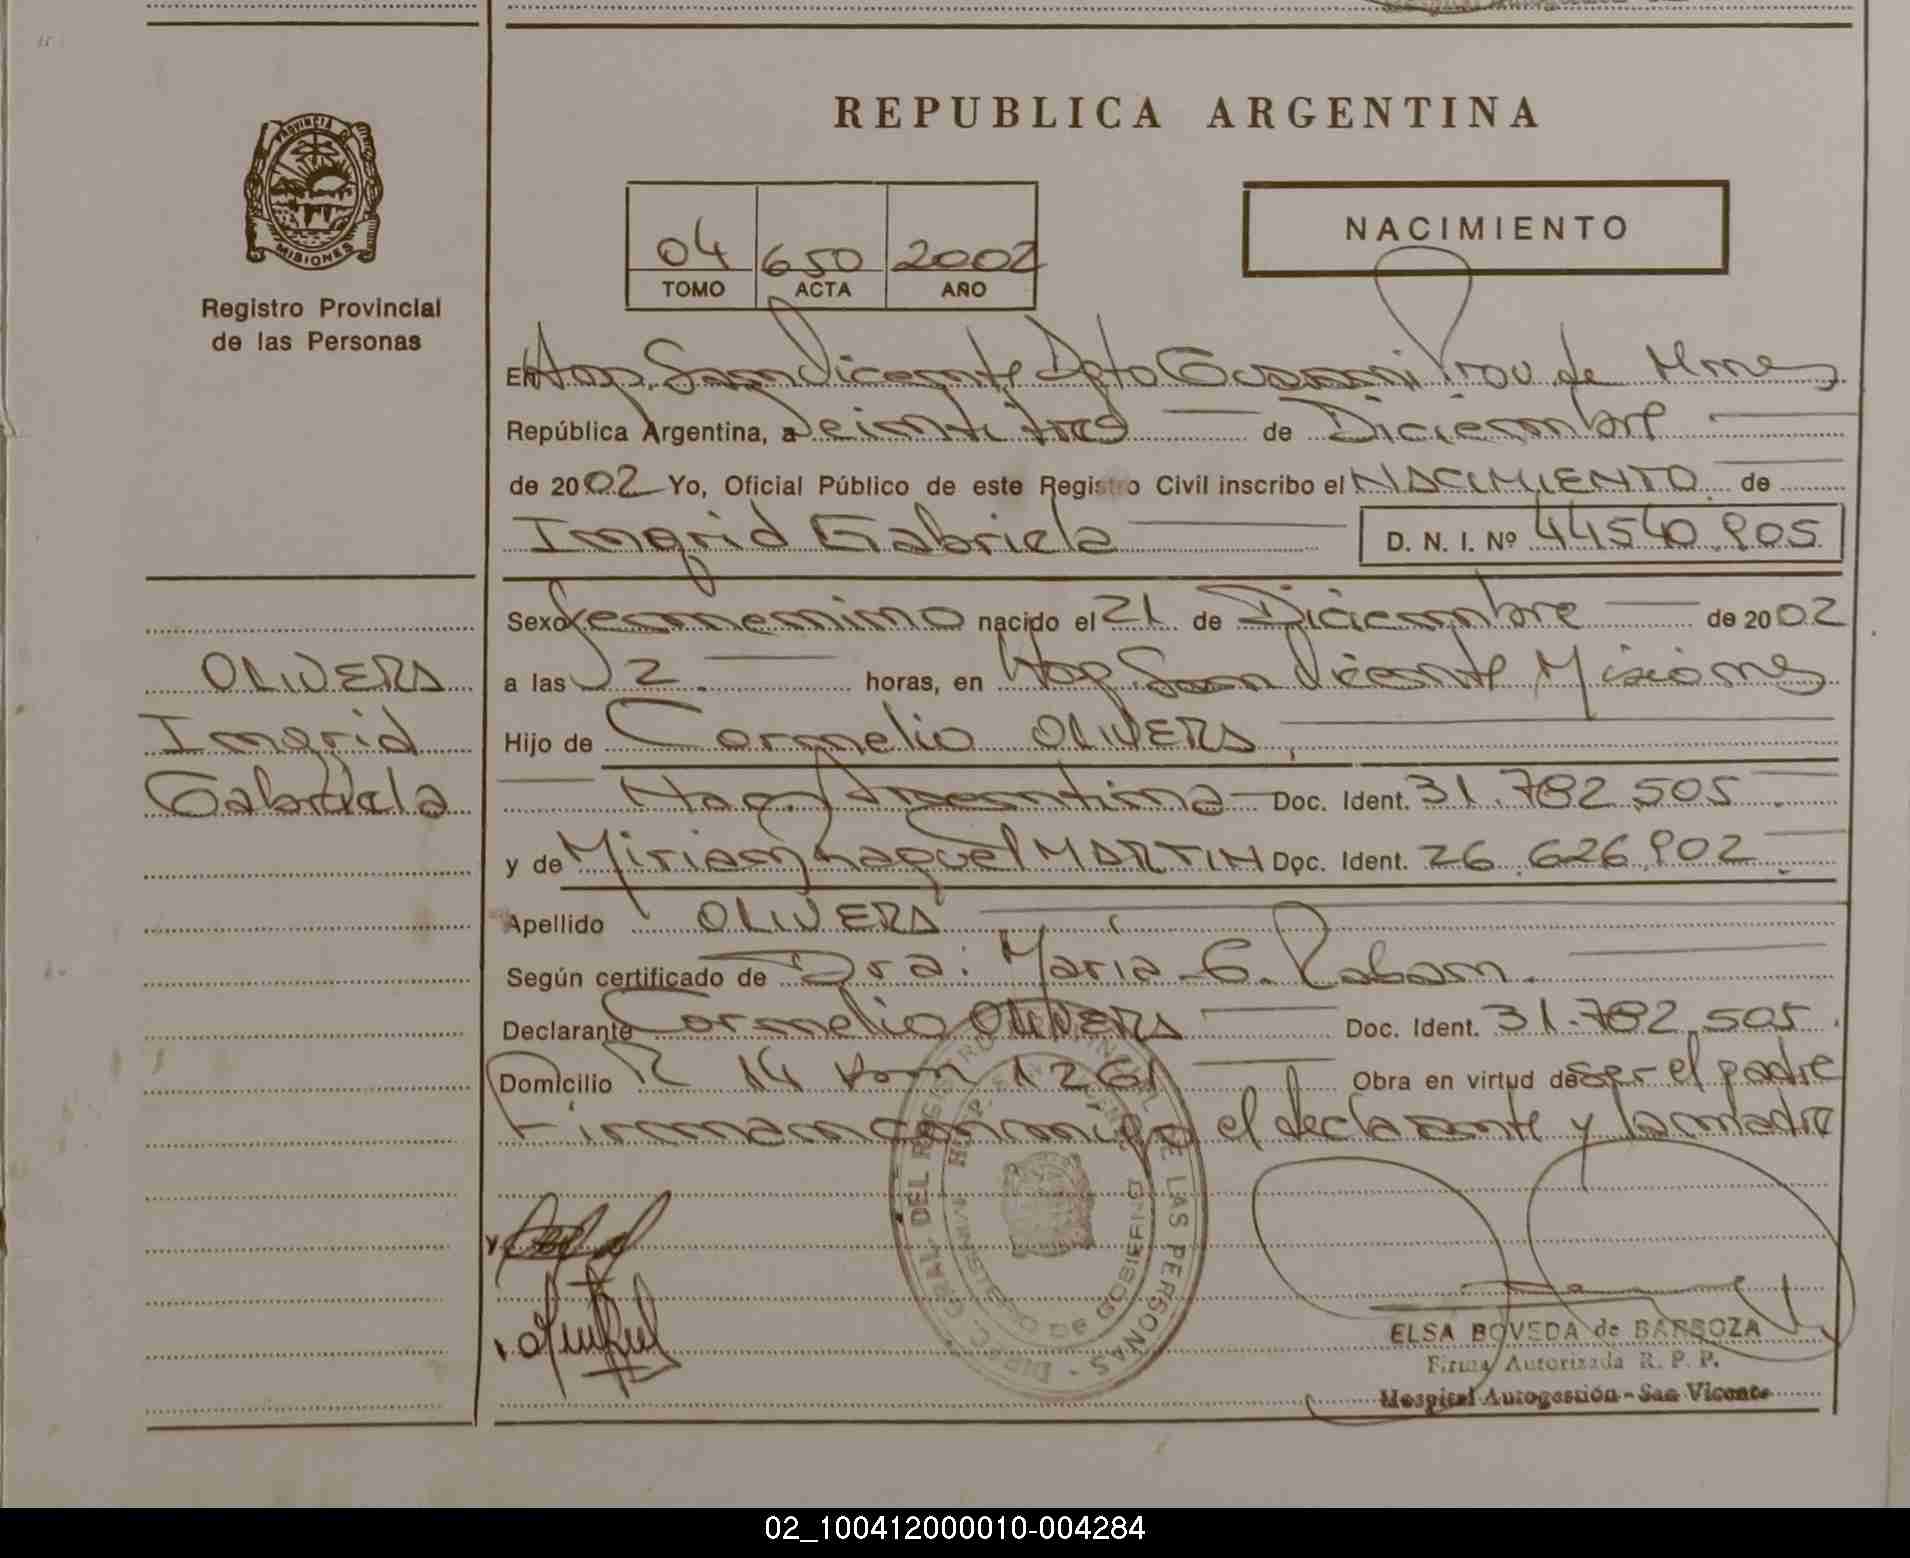 REPUBLICA ARGENTINA
PROVINCIA DE
MISIONES
Registro Provincial
de las Personas
04 650 2002
TOMO ACTA AÑO
NACIMIENTO
En Hop. San Vicente Dpto Guarani Prov de Mnes
República Argentina, a Veintitres de Diciembre
de 2002 Yo, Oficial Público de este Registro Civil inscribo el NACIMIENTO de
Ingrid Gabriela D. N. I. Nº 44540.905
Sexo femenino nacido el 21 de Diciembre de 2002
a las 2 horas, en Hop. San Vicente Misiones
Hijo de Cornelio OLIVERA
Nac. Argentina Doc. Ident. 31.782.505
y de Miriam Raquel MARTIN Doc. Ident. 26.626.902
Apellido OLIVERA
Según certificado de Dra: Maria G. Raban.
Declarante Cornelio OLIVERA Doc. Ident. 31.782.505.
Domicilio R 14 Km 1261 Obra en virtud de ser el padre
Firman conmigo el declarante y la madre
OLIVERA
Ingrid
Gabriela
DIREC. GRAL. DEL REGISTRO PROVINCIAL DE LAS PERSONAS
DE GOBIERNO
ELSA BOVEDA de BARBOZA
Firma Autorizada R. P. P.
Hospital Autogestión - San Vicente
02_100412000010-004284